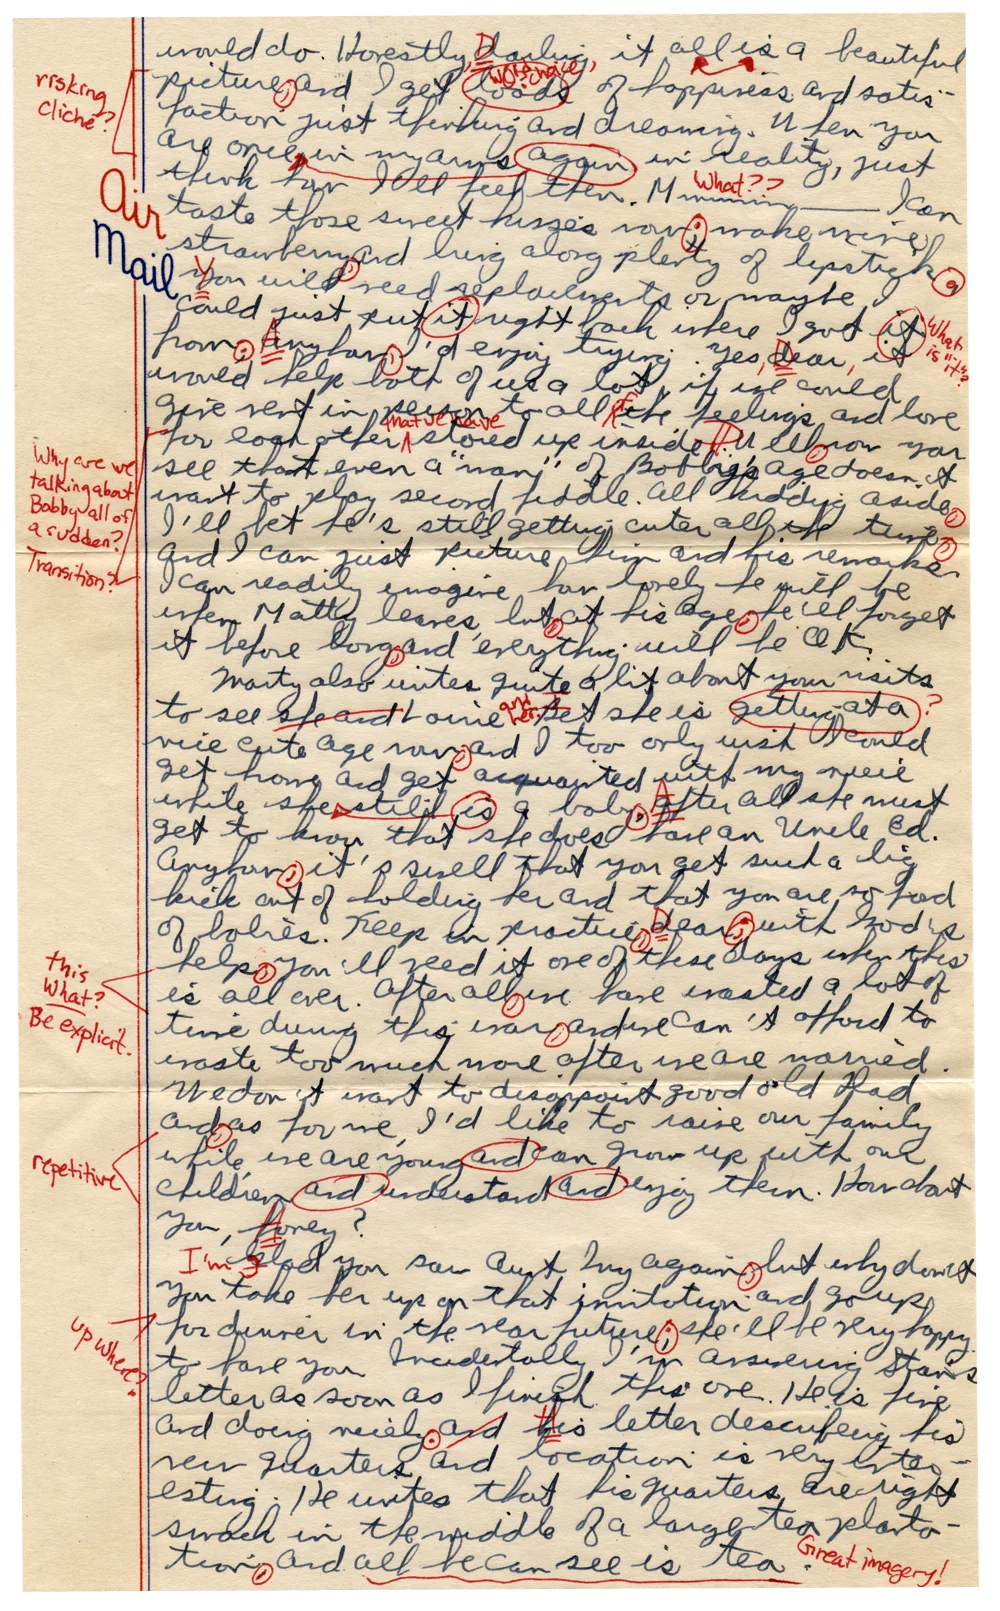 would do. Honestly, Darling, it all is a beautiful
word choice,
risking cliché?
picture, and I get loads of happiness and satis-
faction just thinking and dreaming. When you
are once in my arms again in reality, just
What??
think how I'll feel then. Mmmmmm—— I can
Air Mail
taste those sweet kisses now; make mine
strawberry and bring along plenty of lipstick,
You will need replacements or maybe I
could just put it right back where I got it
What is "it"?
from; Anyhow, I'd enjoy trying. Yes, Dear, it
would help both of us a lot, if we could
give vent in person to all of the feelings and love
that we have
for each other stored up inside. Well now you
Why are we talking about Bobby all of a sudden? Transition?
see that even a "man" of Bobby's age doesn't
want to play second fiddle. All kidding aside,
I'll bet he's still getting cuter all the time,
and I can just picture him and his remarks.
I can readily imagine how lonely he will be
when Matty leaves, but at his age, he'll forget
it before long, and everything will be O.K.
Marty also writes quite a bit about your visits
and her.
to see she and Lorie Bet she is getting at a ?
nice cute age now, and I too only wish I could
get home and get acquainted with my niece
while she still is a baby. After all she must
get to know that she does have an Uncle Ed.
Anyhow, it's swell that you get such a big
kick out of holding her and that you are so fond
of babies. Keep in practice, Dear; with God's
this What? Be explicit.
help, you'll need it one of these days when this
is all over. After all, we have wasted a lot of
time during this war, and we can't afford to
waste too much more after we are married.
We don't want to disappoint good old Dad,
and, as for me, I'd like to raise our family
repetitive
while we are young and can grow up with our
children and understand and enjoy them. How about
you, Honey?
I'm glad you saw Aunt Ivy again, but why don't
you take her up on that invitation and go up
up where?
for dinner in the near future; she'll be very happy
to have you. Incidentally I'm answering Stan's
letter as soon as I finish this one. He is fine
and doing nicely. and His letter describing his
new quarters and location is very inter-
esting. He writes that his quarters are right
smack in the middle of a large tea planta-
tion, and all he can see is tea.
Great imagery!